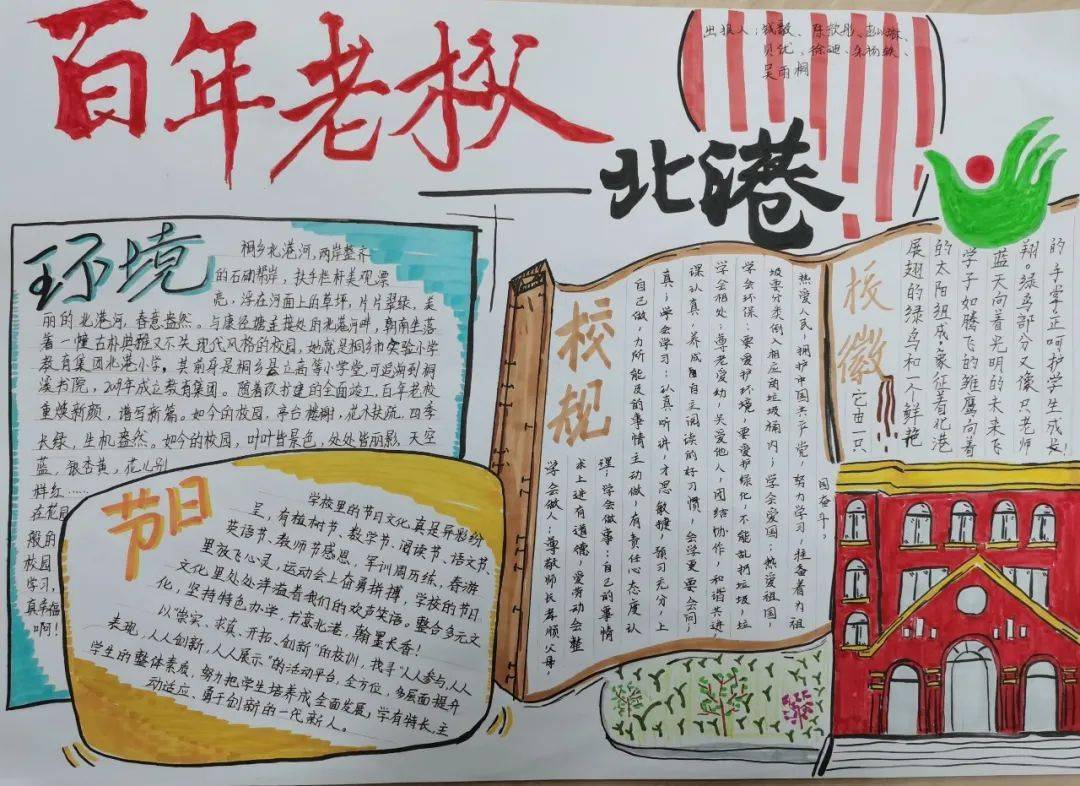 百年老校
——北港
出报人：钱毅、陈欣彤、
贝优、徐迪、朱杨轶、
吴雨桐
环境
桐乡北港河，两岸整齐
的石砌帮岸，扶手栏杆美观漂
亮，浮在河面上的草坪，片片翠绿，美
丽的北港河，春意盎然。与康泾塘垂接处的北港河畔，朝南坐落
着一幢古朴典雅又不失现代风格的校园，她就是桐乡市实验小学
教育集团北港小学。其前身是桐乡县立高等小学堂，可追溯到桐
溪书院，2019年成立教育集团。随着改书建的全面竣工，百年老校
重焕新颜，谱写新篇。如今的校园，亭台楼榭，花木扶疏，四季
长绿，生机盎然。如今的校园，叶叶皆景色，处处皆丽影，天空
蓝，银杏黄，花儿别
样红……
在花园
般的
校园
学习，
真幸福
啊！
节日
学校里的节日文化真是异彩纷
呈，有植树节、数学节、阅读节、语文节、
英语节、教师节感恩，军训周历练，春游
里放飞心灵，运动会上奋勇拼搏，学校的节日
文化里处处洋溢着我们的欢声笑语。整合多元文
化，坚持特色办学，书意北港，翰墨长香！
以“崇实、求真、开拓、创新”的校训，找寻“人人参与，人人
表现，人人创新，人人展示”的活动平台，全方位，多层面提升
学生的整体素质，努力把学生培养成全面发展，学有特长，主
动适应，勇于创新的一代新人。
校规
学会做人：尊敬师长孝顺父母，
求上进有道德，爱劳动会整
理；学会做事：自己的事情
自己做，力所能及的事情主动做，有责任心态度认
真；学会学习：认真听讲，才思敏捷，预习充分，上
课认真，养成自主阅读的好习惯，会学更要会问；
学会相处：尊老爱幼，关爱他人，团结协作，和谐共进；
学会环保：要爱护环境，要爱护绿化，不能乱扔垃圾，垃
圾要分类倒入相应的垃圾桶内；学会爱国：热爱祖国
热爱人民，拥护中国共产党，努力学习，担奋着为祖
国奋斗。
校徽
它由一只
展翅的绿鸟和一个鲜艳
的太阳组成。象征着北港
学子如腾飞的雏鹰，向着
蓝天向着光明的未来飞
翔。绿鸟部分又像只老师
的手掌，正呵护学生成长！